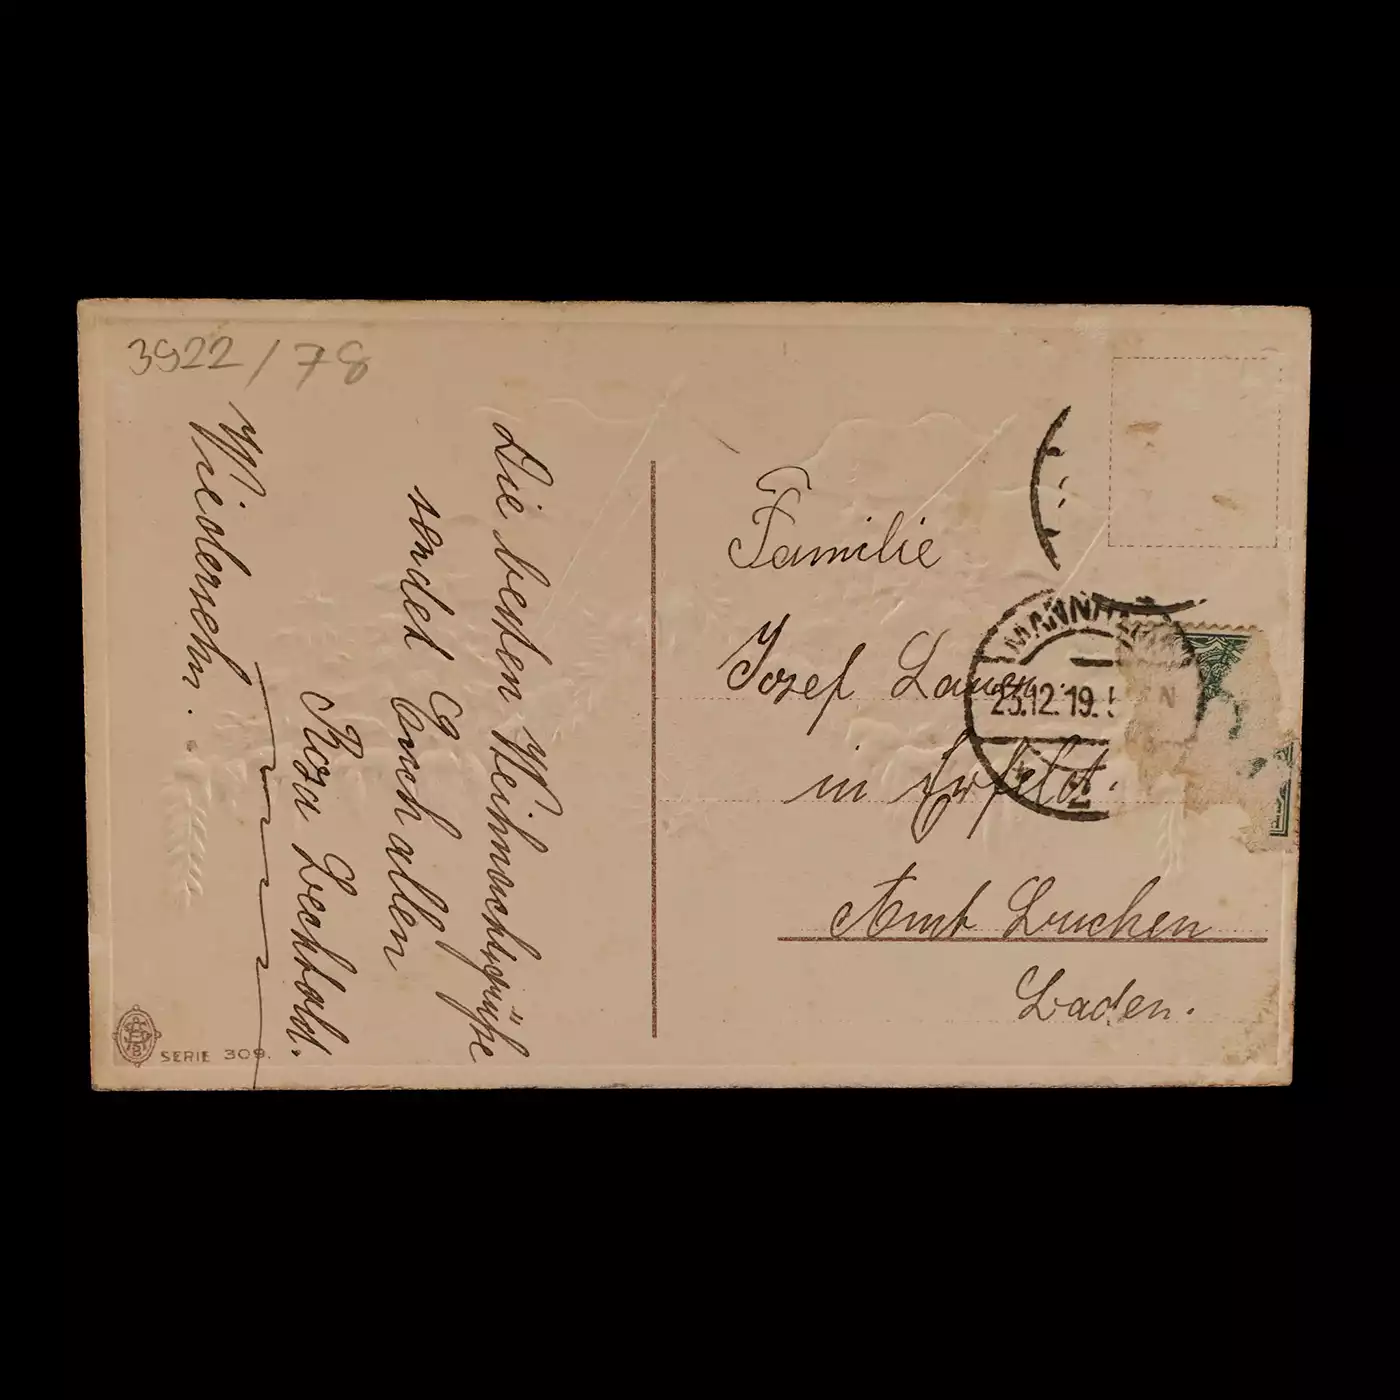 3922/78
Die besten Weihnachtsgrüße
sendet Euch allen
Rosa Bechtold.
Wiedersehn.
SERIE 309.
Familie
Josef Lauer
in Erfeld.
Amt Buchen
Baden.
MANNHEIM
23.12.19.5
N
2